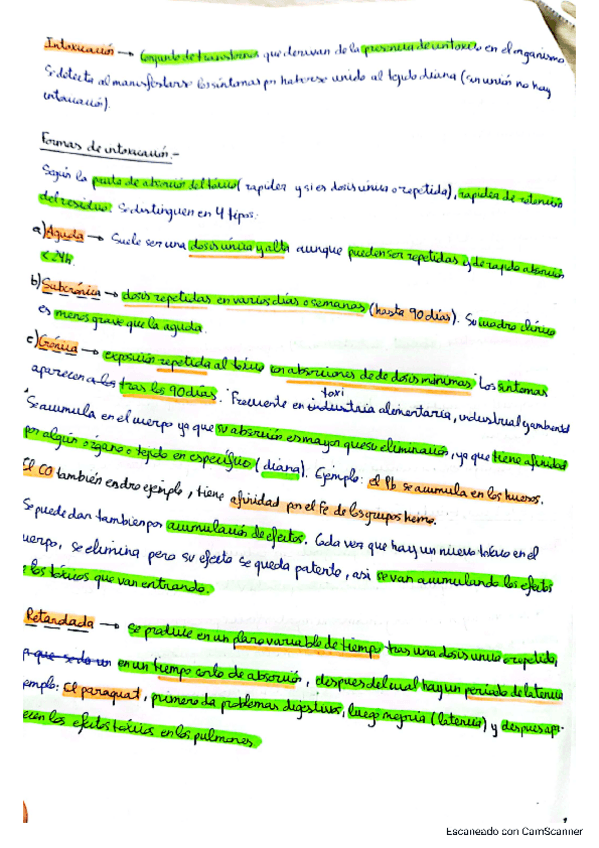 Intoxicación → Conjunto de transtornos que derivan de la presencia de un toxico en el organismo
Se detecta al manifestarse los síntomas por haberse unido al tejido diana (sin unión no hay
intoxicación).
Formas de intoxicación.-
Según la pauta de absorción del tóxico (rapidez y si es dosis única o repetida), rapidez de retención
del residuo. Se distinguen en 4 tipos:
a) Aguda → Suele ser una dosis única y alta aunque pueden ser repetidas y de rapida absorción
< 24h.
b) Subcrónica → dosis repetidas en varios días o semanas (hasta 90 días). Su cuadro clínico
es menos grave que la aguda.
c) Crónica → exposición repetida al tóxico con absorciones de de dosis mínimas. Los síntomas
aparecen a los tras los 90 días. Frecuente en industria toxi alimentaria, industrial y ambiental
Se acumula en el cuerpo ya que su absorción es mayor que su eliminación, ya que tiene afinidad
por algún órgano o tejido en específico (diana). Ejemplo: el Pb se acumula en los huesos.
El CO también es otro ejemplo, tiene afinidad por el Fe de los grupos hemo.
Se puede dar tambien por acumulación de efectos. Cada vez que hay un nuevo tóxico en el
cuerpo, se elimina pero su efecto se queda patente, asi se van acumulando los efectos
de los tóxicos que van entrando.
Retardada → se produce en un plazo variable de tiempo tras una dosis unica o repetida,
en un tiempo corto de absorción, despues del cual hay un periodo de latencia
ejemplo: El paraquat, primero da problemas digestivos, luego mejoria (latencia) y despues apa-
recen los efectos tóxicos en los pulmones
1
Escaneado con CamScanner